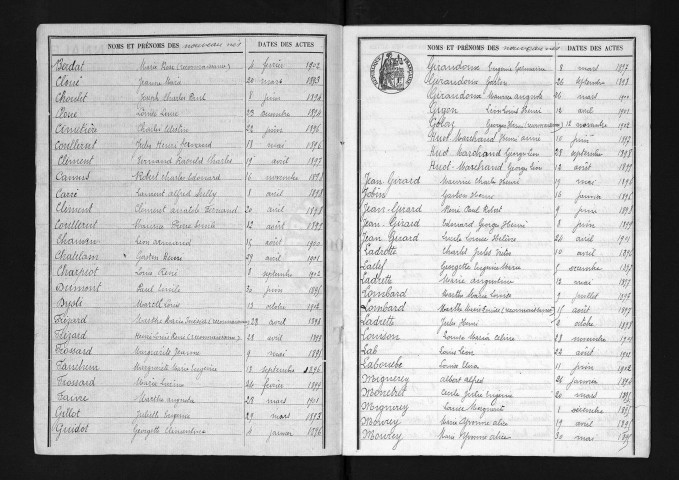 NOMS ET PRÉNOMS DES nouveau nés DATES DES ACTES
Bardat Maria Rose (reconnaissance) 4 février 1902
Cloué Jeanne Marie 20 mars 1893
Choulet Joseph Charles Paul 8 juin 1894
Cloué Louise Anne 23 décembre 1894
Cimetière Charles Célestin 22 juin 1896
Coulleret Jules Henri Fernand 18 mai 1896
Clément Fernand Harold Charles 19 avril 1897
Cannus Robert Charles Edouard 16 novembre 1898
Carré Laurent Alfred 8 avril 1898
Clément Clément Anatole Fernand 20 avril 1898
Coulleret Maurice Pierre 12 août 1898
Chauvin Léon Armand 15 août 1900
Chatelain Gaston Henri 29 avril 1901
Charpiot Louis René 8 septembre 1902
Dumont Paul Emile 30 juin 1895
Dysli Marcel Louis 13 octobre 1902
Frézard (reconnaissance) 23 avril 1898
Frézard Henri Louis René (reconnaissance) 28 avril 1899
Frossard Marguerite Jeanne 9 mai 1899
Fanebrun Marguerite Marie Eugénie 18 septembre 1896
Frossard Maria Lucine 26 février 1899
Faivre Marthe Augusta 28 mars 1901
Gillot Juliette Eugénie 29 mars 1893
Guidot Georgette Clémentine 4 janvier 1896
NOMS ET PRÉNOMS DES nouveau nés DATES DES ACTES
RÉPUBLIQUE FRANÇAISE
Girandoux Eugène Germain 8 mars 1897
Girandoux Gaston 26 septembre 1898
Girandoux Maurice Auguste 26 mars
Gigon Léon Louis Henri 12 avril 1901
Golay Georges Henri (reconnaissance) 12 novembre 1902
Huot Marchand Henri Aimé 10 juin 1897
Huot Marchand Georges Léon 28 septembre 1898
Huot-Marchand Georges Léon 12 août 1899
Jean Girard Maurice Charles Henri 17 mai 1896
Jobin Gaston Henri 16 janvier 1898
Jean-Gérard René Paul Robert 9 juin 1898
Jean Girard Edouard Georges Henri 8 juin 1899
Jean Girard Cécile Louise Hélène 20 avril 1901
Ladrette Charles Jules Victor 10 avril 1896
Lallef Georgette Eugénie Marie 5 décembre 1897
Ladrette Marie Augustine 12 mai 1897
Lombard Marthe Marie Louise 9 juillet 1898
Lombard Marthe Marie Louise (reconnaissance) 15 août 1898
Ladrette Jules Henri 2 octobre 1899
Louison Louise Maria Céline 23 novembre 1901
Lab Louis Léon 22 août 1901
Labouebe Louise Clara 11 juin 1902
Mignerey Albert Alfred 26 janvier 1896
Monnetret Cécile Julie Eugénie 20 mars 1895
Mignerey Louise Marguerite 1 décembre 1895
Mourey Marie Yvonne Alice 19 avril 1895
Mourey Marie Yvonne Alice 30 mai 1895